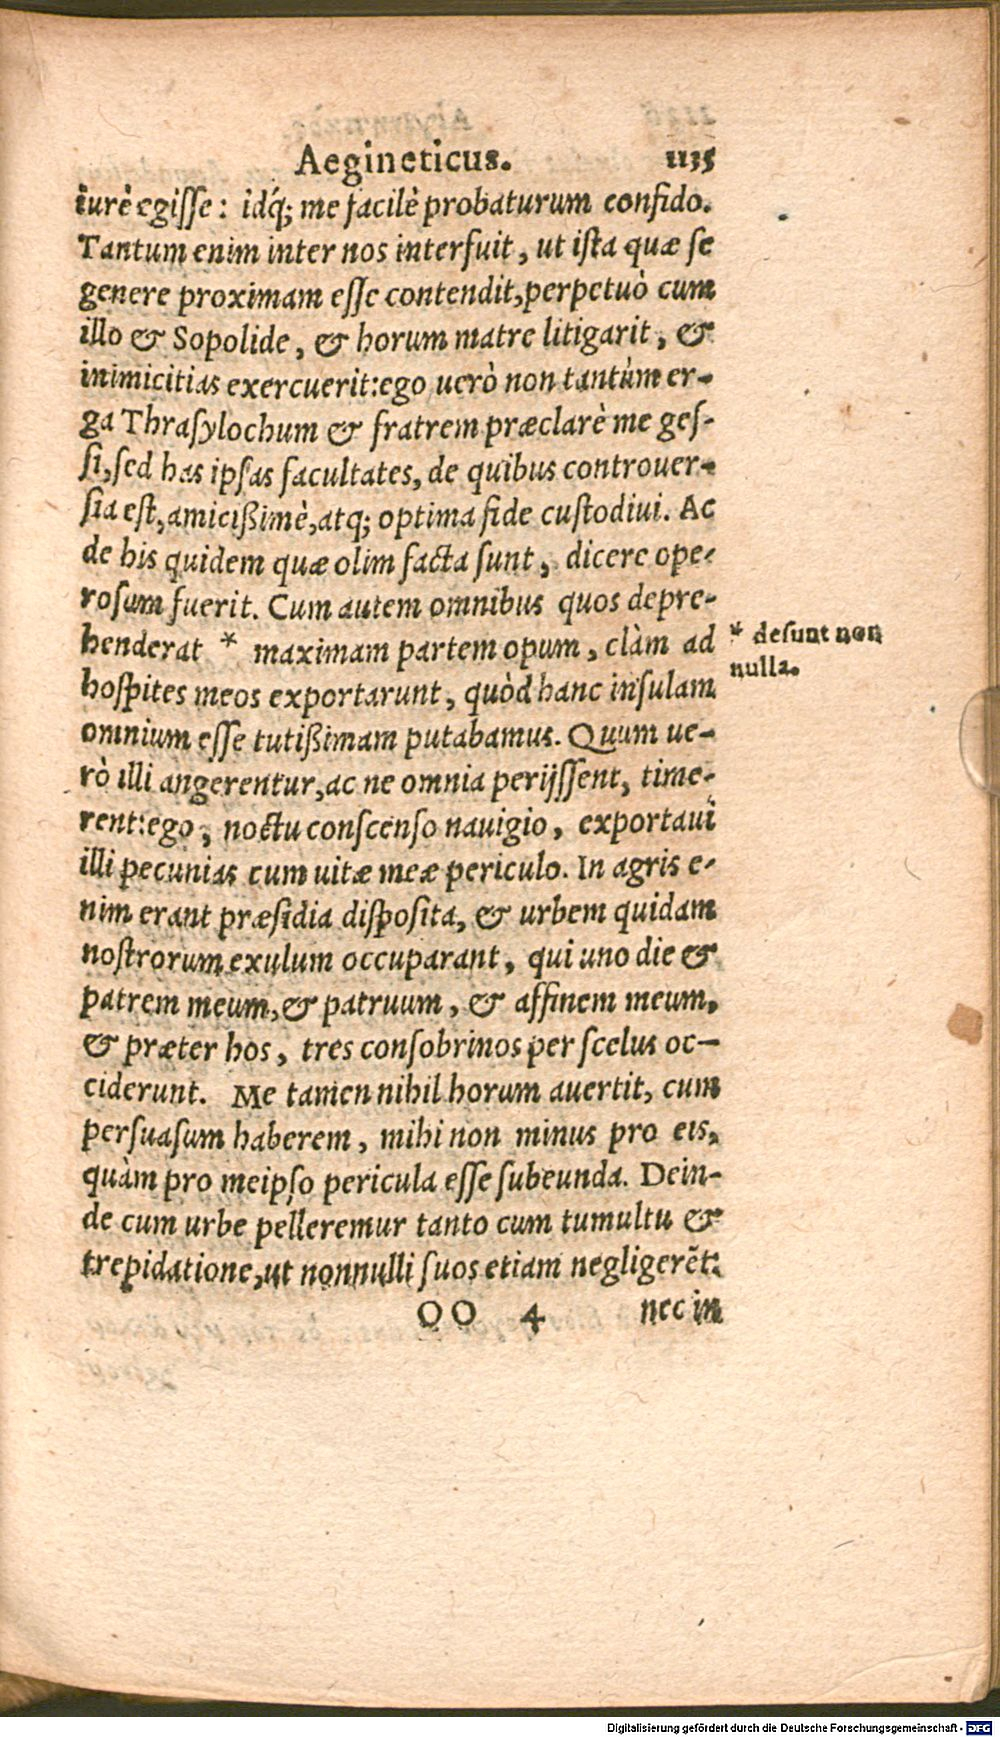 Aegineticus. 1135
iurè egiſſe: idq́; me facilè probaturum confido.
Tantum enim inter nos interfuit, ut iſta quæ ſe
genere proximam eſſe contendit, perpetuò cum
illo & Sopolide, & horum matre litigarit, &
inimicitias exercuerit: ego uerò non tantùm er-
ga Thraſylochum & fratrem præclarè me geſ-
ſi, ſed has ipſas facultates, de quibus controuer-
ſia eſt, amicißimè, atq; optima fide cuſtodiui. Ac
de his quidem quæ olim facta ſunt, dicere ope-
roſum fuerit. Cum autem omnibus quos depre-
henderat * maximam partem opum, clàm ad
hoſpites meos exportarunt, quòd hanc inſulam
omnium eſſe tutißimam putabamus. Quum ue-
rò illi angerentur, ac ne omnia perijſſent, time-
rent: ego, noctu conſcenſo nauigio, exportaui
illi pecunias cum uitæ meæ periculo. In agris e-
nim erant præſidia diſpoſita, & urbem quidam
noſtrorum exulum occuparant, qui uno die &
patrem meum, & patruum, & affinem meum,
& præter hos, tres conſobrinos per ſcelus oc-
ciderunt. Me tamen nihil horum auertit, cum
perſuaſum haberem, mihi non minus pro eis,
quàm pro meipſo pericula eſſe ſubeunda. Dein-
de cum urbe pelleremur tanto cum tumultu &
trepidatione, ut nonnulli ſuos etiam negligerēt:
OO 4 nec in
* deſunt non
nulla.
Digitalisierung gefördert durch die Deutsche Forschungsgemeinschaft - DFG